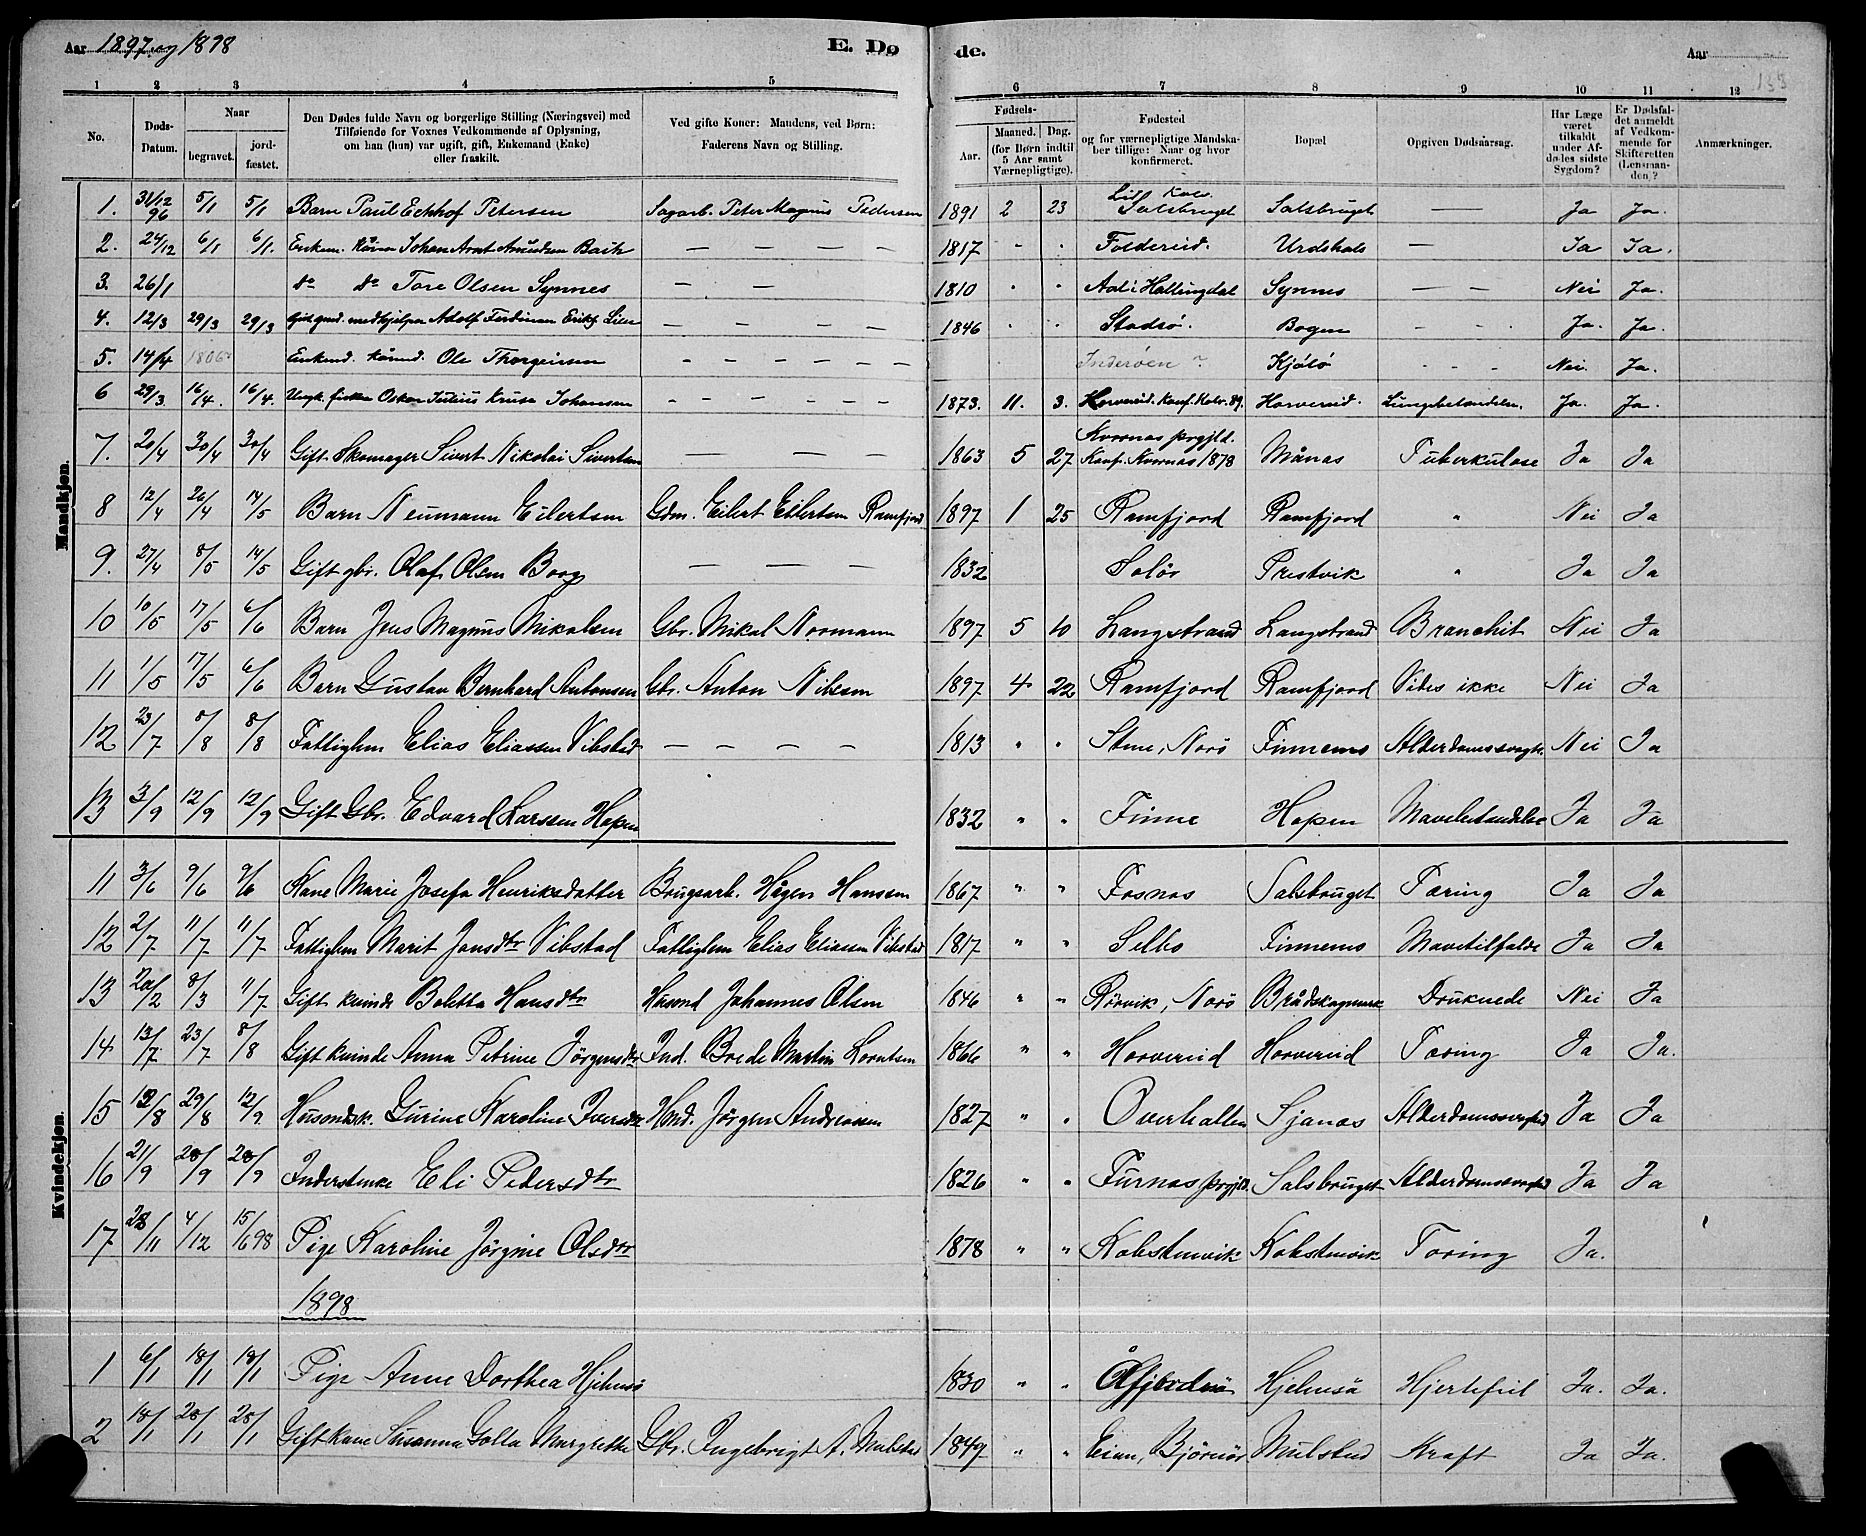 Aar 1897 og 1898 E. Dø de. Aar
133
1 2 3 4 5 6 7 8 9 10 11 12
No. Døds-Datum. Naar begravet. jord-fæstet. Den Dødes fulde Navn og borgerlige Stilling (Næringsvei) med Tilføiende for Voxnes Vedkommende af Oplysning, om han (hun) var ugift, gift, Enkemand (Enke) eller fraskilt. Ved gifte Koner: Mandens, ved Børn: Faderens Navn og Stilling. Fødsels- Aar. Maaned. Dag. (for Børn indtil 5 Aar samt Værnepligtige). Fødested og for værnepligtige Mandskaber tillige: Naar og hvor konfirmeret. Bopæl Opgiven Dødsaarsag. Har Læge været tilkaldt under Afdødes sidste Sygdom? Er Dødsfaldet anmeldt af Vedkommende for Skifteretten (Lensmanden)? Anmærkninger.
Mandkjøn.
1. 31/12 96 5/1 5/1 Barn Paul Eckhof Petersen Sagarb. Peter Magnus Pedersen 1891 2 23 Salsbruget Salsbruget — Ja Ja.
2. 24/12 6/1 6/1. Enkem. Johan Arnt Amundsen Bach — — — — 1817 " " Foldereid. Urdshals — Ja Ja.
3. 26/1 do do Tore Olsen Synnes — — 1810 " " Aal i Hallingdal Synnes — — Nei Ja.
4. 12/3 29/3 29/3 medhjelper Adolf Ferdinan — — — — — 1846 " " Stadsø. Bogen - - - Ja. Ja.
5. 14/4 1806 Enkemd. kårmd. Ole Thorgeirsen — — — — — Inderøen? Kjølø - - - Nei. Ja.
6 29/3. 16/4. 16/4. Ungk. fisker Oskar Julius Kruse Johansen — — — — — 1873. 11. 3. Horvereid. Konf. Kolv. 89. Horvereid. Lungebetændelse. Ja. Ja.
7. 20/4 30/4 30/4 Gift Skomager Sivert Nikolai Sivertsen — — — 1863 5 27 Kvernæs prgjld. Konf. Kvernæs 1878 Månæs Tuberkulose Ja Ja
8 12/4 20/4 14/5 Barn Neumann Eilertsen Gdm. Eilert Eilertsen Ramfjord 1897 1 25 Ramfjord Ramfjord " Nei Ja
9. 27/4 8/5 14/5 Gift gbr. Olaf Olsen Borg — — — 1832 Solør Prestvik " Ja Ja
10 10/5 17/5 6/6 Barn Jens Magnus Mikalsen Gbr. Mikal Normann 1897 5 10 Langstrand Langstrand Bronchit Nei Ja
11 1/5 17/5 6/6 Barn Gustav Bernhard Antonsen Gbr. Anton Nilsen 1897 4 22 Ramfjord Ramfjord Vides ikke Nei Ja
12 23/7 8/8 8/8 Fattiglem Elias Eliassen Vibstad — — — — 1813 " " Stene, Nærø Finnems Alderdomssvagh. Nei Ja
13 3/9 12/9 12/9 Gift Gbr. Edvard Larssen Hopen 1832 " " Finne Hopen Mavebetændelse Ja Ja
Kvindekjøn.
11 3/6 9/6 9/6 Kone Marie Josefa Henriksdatter Brugsarb. Hågen Hanssen 1867 " " Fosnæs Salsbruget Tæring Ja Ja
12 2/7 11/7 11/7 Fattiglem Marit Jonsdtr Vibstad Fattiglem Elias Eliasen Vibstad 1817 " " Selbo Finnems Mavetilfælde Ja Ja
13 20/2 8/3 11/7 Gift kvinde Boletta Hansdtr Husmd Johannes Olsen 1846 " " Rørvik, Nærø Druknede Nei Ja
14 13/7 23/7 8/8 Gift kvinde Anna Petrine Jørgensdtr Ind. Brede Martin Lorntsen 1866 " " Horvereid Horvereid Tæring Ja Ja.
15 13/8 29/8 12/9 Husmdsk. Gurine Karoline Iversdtr Hmd. Jørgen Andreassen 1827 " " Overhallen Sjånæs Alderdomssvaghed Ja Ja
16 21/9 28/9 28/9 Inderstenke Eli Pedersdtr 1826 " " Furnæs prgjld. Salsbruget Alderdomssvaghed Ja Ja
17 28/11 4/12 15/6 98 Pige Karoline Jørgine Olsdtr 1878 " " Kobstenvik Kobstenvik Tæring Ja.
1898
1 6/1 18/1 18/1 Pige Anne Dorthea Hjelmsø 1830 " " Åfjorden Hjelmsø Hjertefeil Ja. Ja.
2 18/1 28/1 28/1 Gift kone Susanna Golla Margrethe Gbr. Ingebrigt A. Mulstad 1849 " " Eian, Bjørnør Mulstad Kræft Ja Ja.